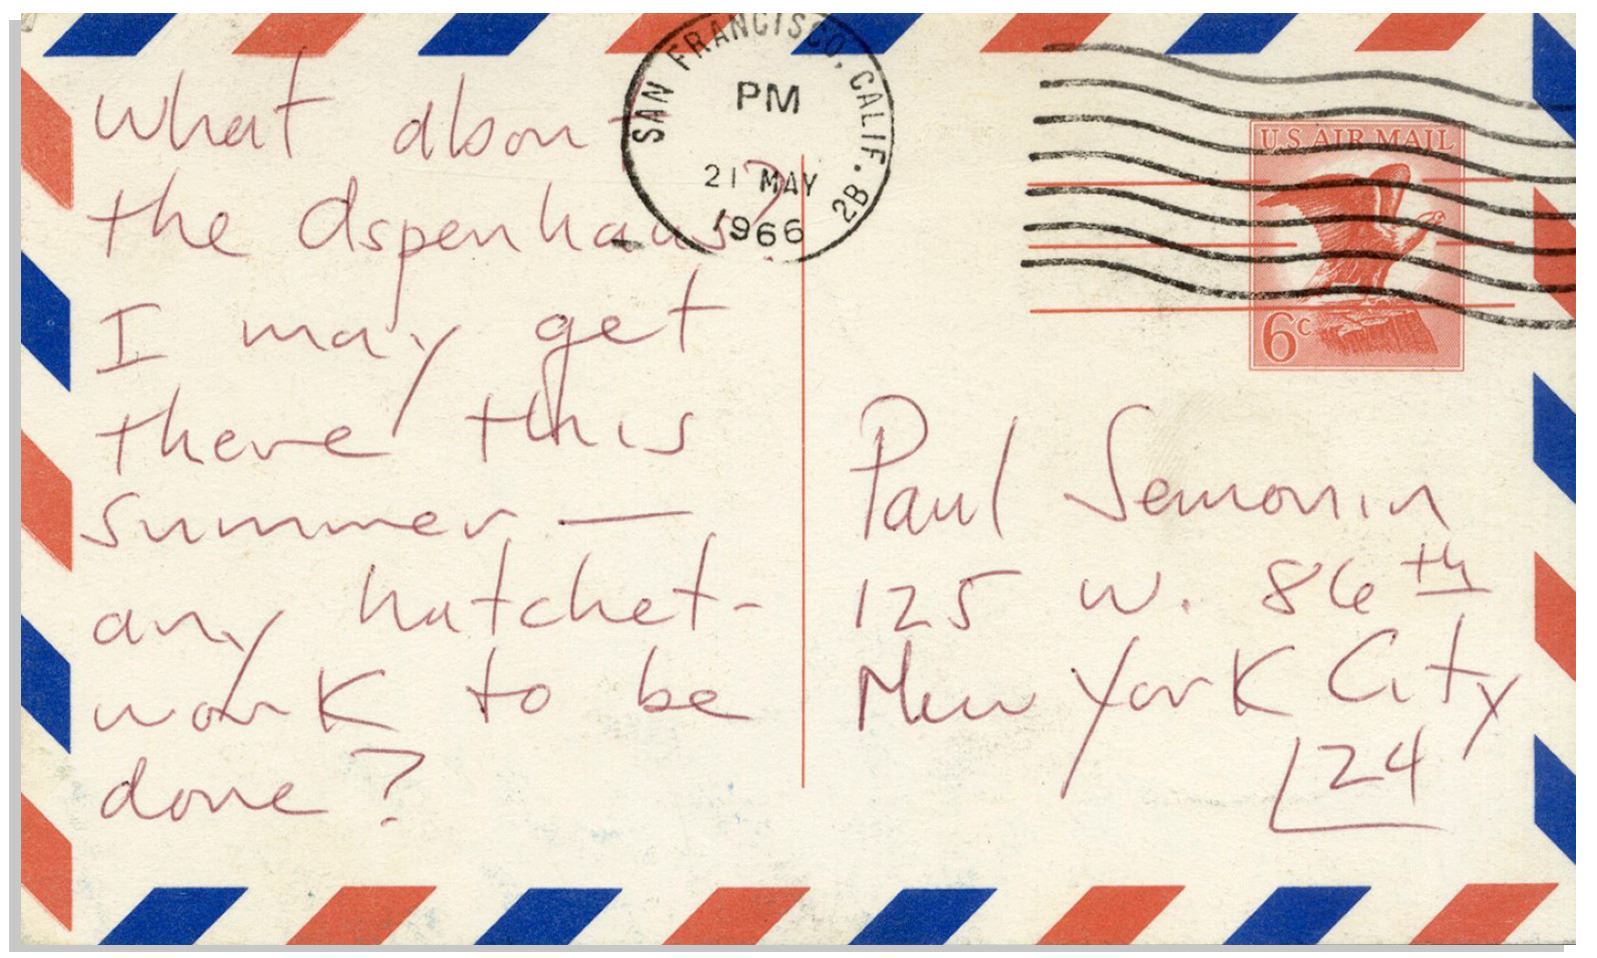 What about
the Aspenhaus?
I may get
there this
summer —
any hatchet-
work to be
done?
SAN FRANCISCO, CALIF. 2B
PM
21 MAY
1966
U S AIR MAIL
6c
Paul Semonin
125 W. 86th
New York City
24